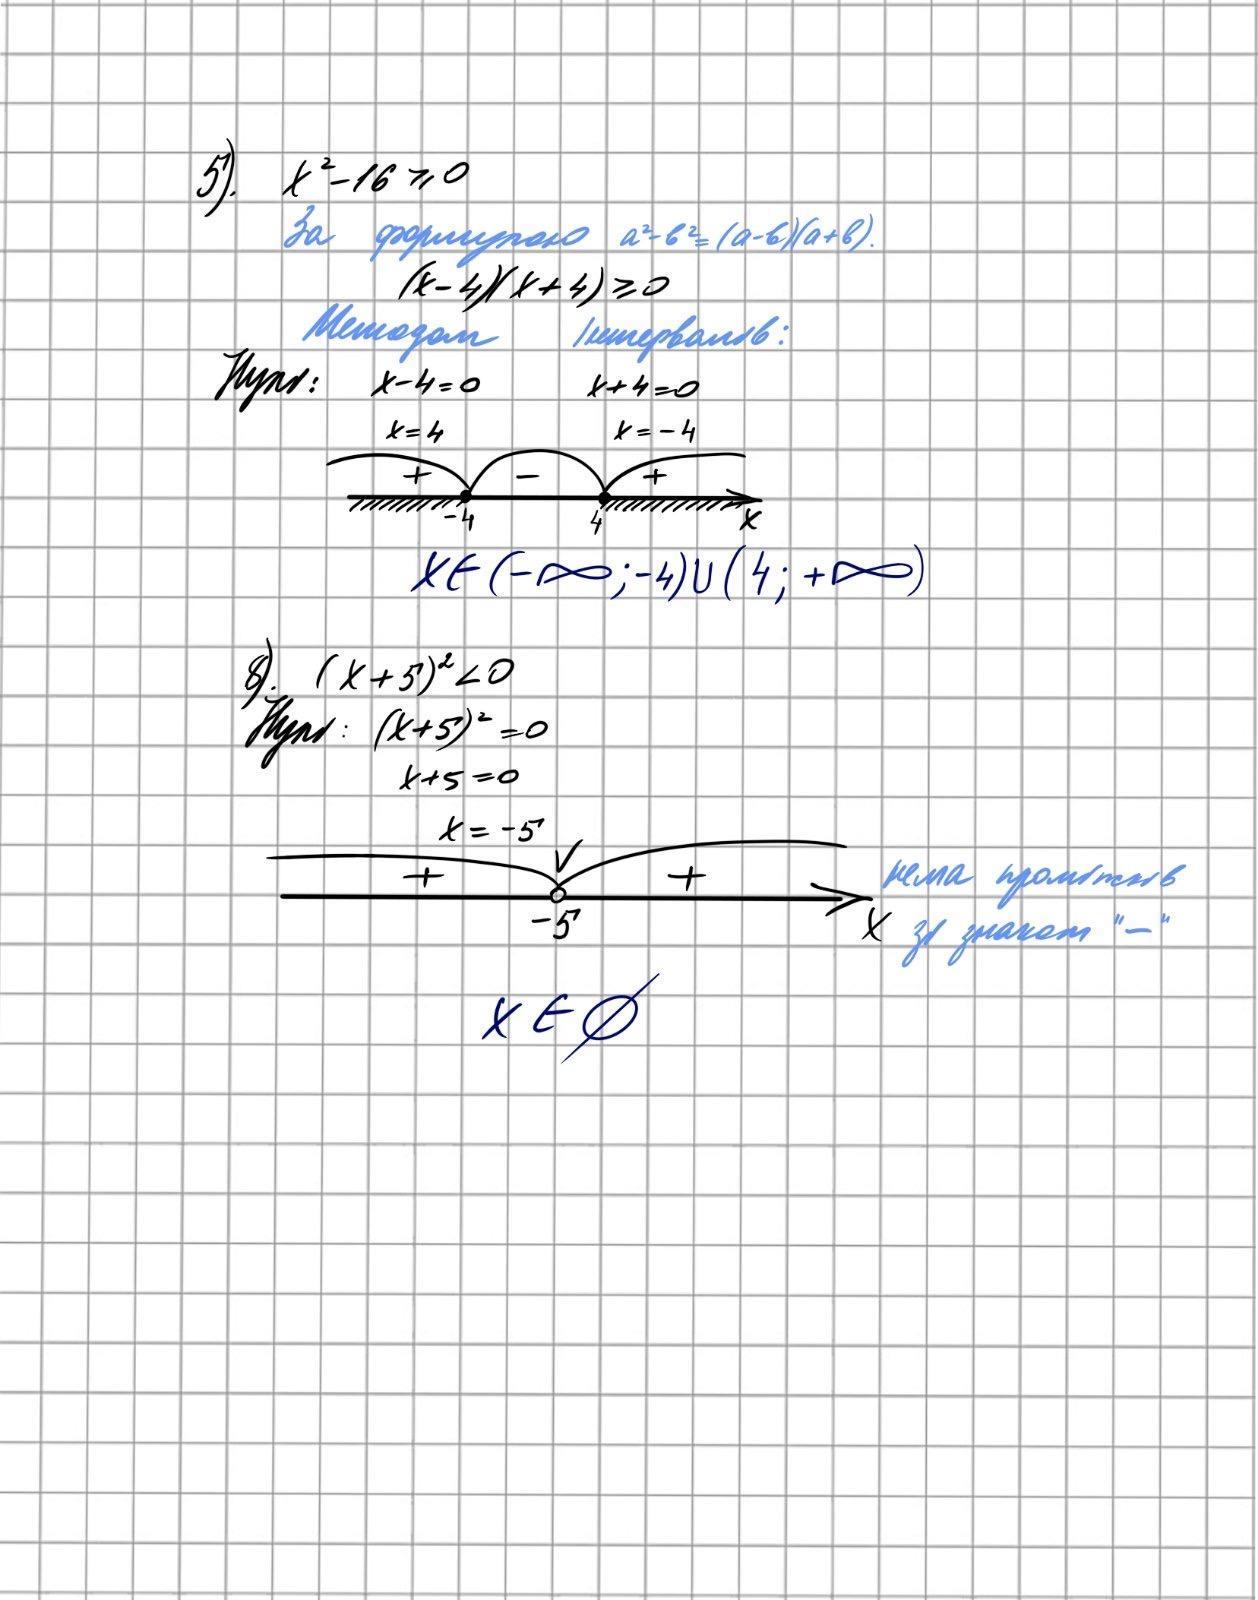 5). x² - 16 ⩾ 0
За формулою a²-b²=(a-b)(a+b).
(x-4)(x+4) ⩾ 0
Методом інтервалів:
Нулі: x-4=0 x+4=0
x=4 x=-4
+ - +
-4 4 x
x∈(-∞;-4)∪(4;+∞)
8). (x+5)² < 0
Нулі: (x+5)² = 0
x+5=0
x = -5
+ +
нема проміжків
-5 x зі знаком "—"
x ∈ ∅